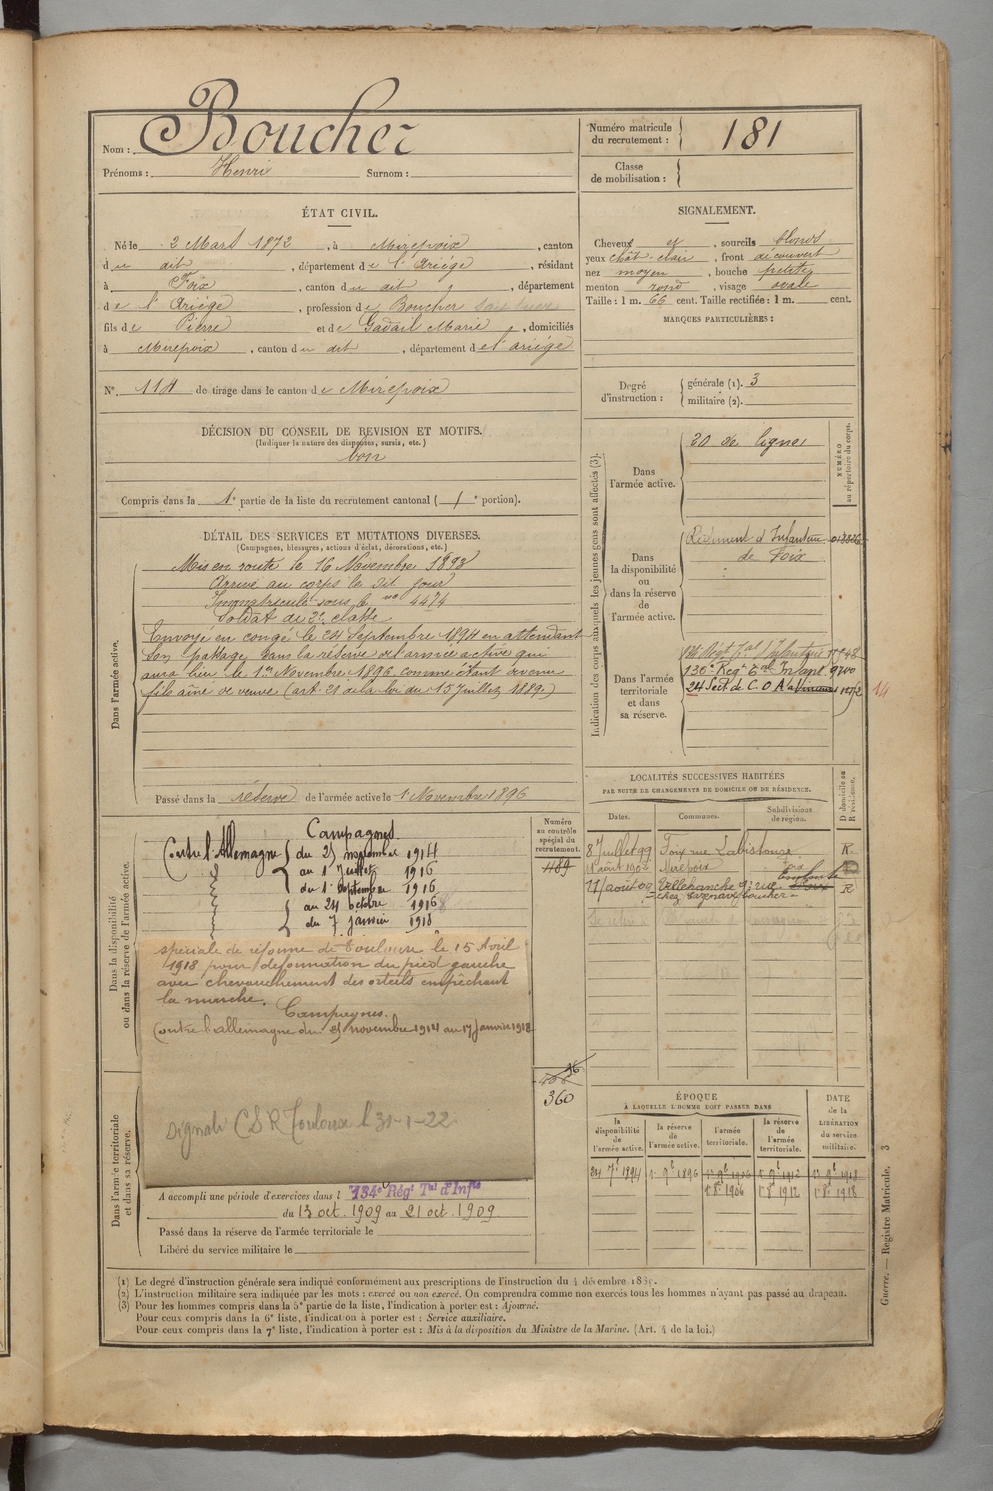 Nom : Boucher
Prénoms : Henri Surnom :
Numéro matricule du recrutement : 181
Classe de mobilisation :
ÉTAT CIVIL.
Né le 2 Mars 1872, à Mirepoix, canton
du dit, département de l'Ariège, résidant
à Foix, canton du dit, département
de l'Ariège, profession de Boucher
fils de Pierre et de Gadail Marie, domiciliés
à Mirepoix, canton du dit, département de l'ariège
N° 118 de tirage dans le canton de Mirepoix
SIGNALEMENT.
Cheveux et, sourcils blonds
yeux chât-clair, front découvert
nez moyen, bouche petite
menton rond, visage ovale
Taille : 1 m. 66 cent. Taille rectifiée : 1 m. cent.
MARQUES PARTICULIÈRES :
Degré d'instruction : générale (1). 3
militaire (2).
DÉCISION DU CONSEIL DE REVISION ET MOTIFS.
(Indiquer la nature des dispenses, sursis, etc.)
bon
Compris dans la 1e partie de la liste du recrutement cantonal ( portion).
DÉTAIL DES SERVICES ET MUTATIONS DIVERSES.
(Campagnes, blessures, actions d'éclat, décorations, etc.)
Dans l'armée active.
Mis en route le 16 Novembre 1893
Arrivé au corps le dit jour
Immatriculé sous le no 4474
Soldat de 2e classe
Envoyé en congé le 24 Septembre 1894 en attendant
son passage dans la réserve de l'armée active qui
aura lieu le 1er Novembre 1896 comme étant devenu
fils aîné de veuve (art. 21 de la loi du 15 Juillet 1889)
Passé dans la réserve de l'armée active le 1 Novembre 1896
Indication des corps auxquels les jeunes gens sont affectés (3).
NUMÉRO au répertoire du corps.
Dans l'armée active.
20 de ligne
Dans la disponibilité ou dans la réserve de l'armée active.
Régiment d'Infanterie
de Foix
Dans l'armée territoriale et dans sa réserve.
Régt Tal d'Infanterie
136e Regt Tal Infant 9700
24 Sect. de C O A
14
LOCALITÉS SUCCESSIVES HABITÉES
PAR SUITE DE CHANGEMENTS DE DOMICILE OU DE RÉSIDENCE.
Dates. Communes. Subdivisions de région. D domicile ou R résidence.
8 Juillet 99 Foix rue Labistour R
août 190 Mirepoix Foix
août 09 Villefranche Toulouse R
chez Cazenave boucher
Numéro au contrôle spécial du recrutement.
1189
360
Dans la disponibilité ou dans la réserve de l'armée active.
Campagnes
Contre l'Allemagne du 25 novembre 1914
au 1 Juillet 1916
du 1 septembre 1916
au 24 octobre 1916
du 7 janvier 1918
spéciale de réforme de Toulouse le 15 Avril
1918 pour déformation du pied gauche
avec chevauchement des orteils empêchant
la marche.
Campagnes.
Contre l'allemagne du 25 novembre 1914 au 17 Janvier 1918
Signalé C S R Toulouse le 31-1-22
Dans l'armée territoriale et dans sa réserve.
A accompli une période d'exercices dans l 134e Régt Tal d'Infie
du 13 oct. 1909 au 21 oct. 1909
Passé dans la réserve de l'armée territoriale le
Libéré du service militaire le
ÉPOQUE
À LAQUELLE L'HOMME DOIT PASSER DANS
DATE de la LIBÉRATION du service militaire.
la disponibilité de l'armée active. la réserve de l'armée active. l'armée territoriale. la réserve de l'armée territoriale.
24 7e 1894 1e 9e 1896 1e 9e 1906 1e 9e 1912 1e 9e 1918
1e 8e 1906 1e 8e 1912 1e 8e 1918
(1) Le degré d'instruction générale sera indiqué conformément aux prescriptions de l'instruction du 4 décembre 1889.
(2) L'instruction militaire sera indiquée par les mots : exercé ou non exercé. On comprendra comme non exercés tous les hommes n'ayant pas passé au drapeau.
(3) Pour les hommes compris dans la 5e partie de la liste, l'indication à porter est : Ajourné.
Pour ceux compris dans la 6e liste, l'indication à porter est : Service auxiliaire.
Pour ceux compris dans la 7e liste, l'indication à porter est : Mis à la disposition du Ministre de la Marine. (Art. 4 de la loi.)
Guerre. — Registre Matricule. 3